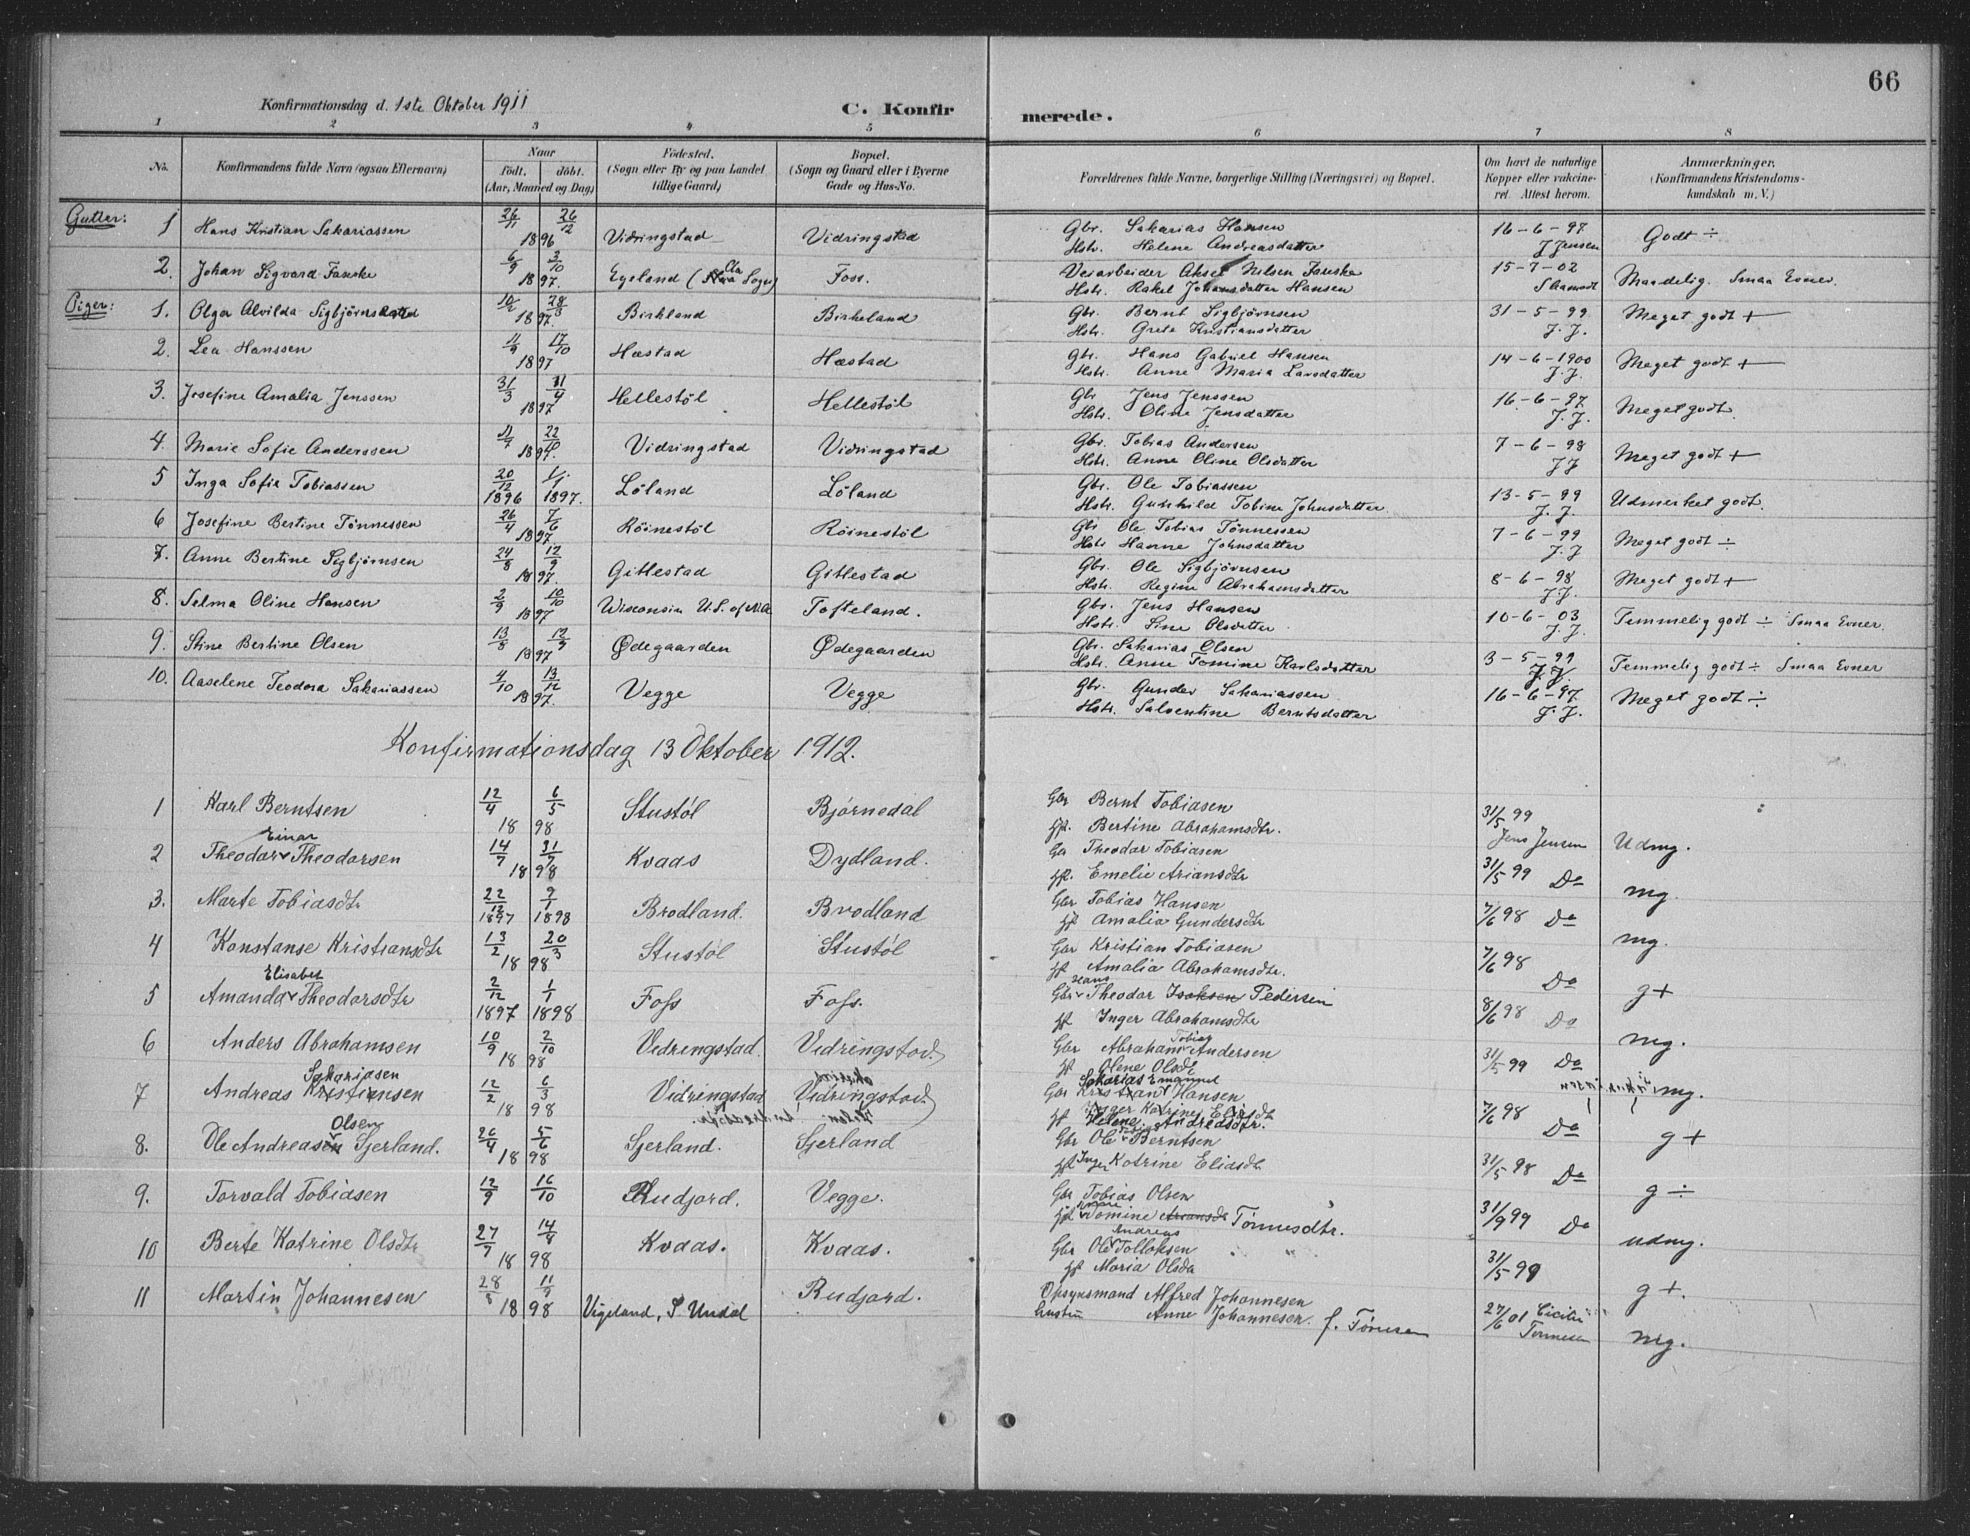 66
Konfirmationsdag d. 1ste Oktober 1911 C. Konfirmerede.
1 2 3 4 5 6 7 8
No. Konfirmandens fulde Navn (ogsaa Efternavn) Naar Født. døbt. (Aar, Maaned og Dag) Fødested. (Sogn eller By og paa Landet tillige Gaard) Bopæl. (Sogn og Gaard eller i Byerne Gade og Hus-No. Forældrenes fulde Navne, borgerlige Stilling (Næringsvei) og Bopæl. Om havt de naturlige Kopper eller vakcineret. Attest herom. Anmærkninger. (Konfirmandens Kristendomskundskab m. V.)
Gutter: 1 Hans Kristian Sakariassen 26/11 26/12 1896 Vidringstad Vidringstad Gbr. Sakarias Hansen 16-6-97 Godt ÷
Hstr. Helene Andreasdatter J Jensen
2. Johan Sigvard Fanske 6/9 3/10 1897. Eyeland ( Sogn) Foss. Veiarbeider Aksel Nilsen Fanske 15-7-02 Maadelig. Smaa Evner.
Hstr. Rakel Johansdatter Hansen
Piger: 1. Olga Alvilda 10/2 28/3 1897. Birkland Birkeland Gbr. Bernt Sigbjørnsen 31-5-99 Meget godt +
Hstr. Grete Kristiansdatter J. J.
2. Lea Hanssen 11/9 17/10 1897 Hæstad Hæstad Gbr. Hans Gabriel Hansen 14-6-1900 Meget godt +
Hstr. Anne Maria Larsdatter J. J.
3. Josefine Amalia Jenssen 31/3 1897 Hellestöl Hellestöl Gbr Jens Jenssen 16-6-97 Meget godt.
Hstr. Oline Jensdatter J. J.
4. Marie Sofie Anderssen 22/10 Vidringstad Vidringstad Gbr. Tobias Andersen 7-6-98 Meget godt +
Hstr. Anne Oline Olsdatter J J
5 Inga Sofie Tobiassen 20/12 1896 1/1 1897. Löland Löland Gbr. Ole Tobiassen 13-5-99 Udmerket godt.
Hstr. Gunhild Tobine Johnsdatter. J. J.
6 Josefine Bertine Tönnessen 26/4 7/6 1897. Röinestöl Röinestöl Gbr Ole Tobias Tönnessen 7-6-99 Meget godt ÷
Hstr Hanne Johnsdatter J. J
7. Anne Bertine Sigbjørnsen 24/8 12/9 1897. Gitlestad Gitlestad Gbr. Ole Sigbjørnsen 8-6-98 Meget godt +
Hstr. Regine Abrahamsdatter J J.
8. Selma Oline Hansen 2/9 10/10 1897 Wisconsin U.S. of Tofteland. Gbr. Jens Hansen 10-6-03 Temmelig godt ÷ Smaa Evner.
Hstr. Sine Olsdatter J. J.
9. Stine Bertine Olsen 13/8 12/9 1897 Ødegaarden Ødegaarden Gbr. Sakarias Olsen 3-5-99 Temmelig godt ÷ Smaa Evner
Hstr. Anne Tomine Karlsdatter J. J.
10. Aaselene Teodora Sakariassen 4/10 13/12 1897. Vegge Vegge Gbr. Gunder Sakariassen 16-6-97 Meget godt ÷
Hstr. Salventine Berntsdatter J. J.
Konfirmationsdag 13 Oktober 1912.
1 Karl Berntsen 12/4 6/5 1898 Stustöl Bjørnedal Gbr Bernt Tobiasen 31/5 99 Udmg.
Hst. Bertine Abrahamsdtr. Jens Jensen
2 Theodor Einar Theodorsen 14/7 31/7 1898 Kvaas Dydland. Gbr Theodor Tobiasen 31/5 99 Do mg.
Hst. Emelie Ariansdtr
3. Marte Tobiasdtr 22/12 1897 9/1 1898 Brodland. Brodland Gbr Tobias Hansen 7/6 98 Do mg.
Hst Amalia Gundersdtr
4 Konstanse Kristiansdtr 13/2 20/3 1898 Stustöl Stustöl Gbr Kristian Tobiasen 7/6 98 Do g+
Hst Amalia Abrahamsdtr.
5 Amanda Elisabet Theodorsdtr 2/12 1897 1/1 1898 Foss Foss. Gbr Hans Theodor Isaksen Pedersen 8/6 98 Do mg.
Hst Inger Abrahamsdtr
6 Anders Abrahamsen 10/9 2/10 1898 Vidringstad. Vidringstad. Gbr Abraham Tobias Andersen 31/5 99 Do mg.
Hst Olene Olsdtr
7 Andreas Kristiansen Sakariasen 12/2 6/3 1898 Vidringstad Vidringstad. Gbr Kristian Hansen Sakarias Emanuel 7/6 98 Do g+
Hst Inger Katrine Eliasdtr Helene Andreasdtr.
8. Ole Andreasen Olsen Sjerland. 26/4 5/6 1898 Sjerland. Sjerland Gbr Ole Berntsen 31/5 98 Do g ÷
Hst Inger Katrine Eliasdtr
9. Torvald Tobiasen 12/9 16/10 Rudjord. Vegge. Gbr Tobias Olsen 31/9 99 Do udmg.
Hst Tomine Ariansdtr Tönnesdtr.
10 Berte Katrine Olsdtr 27/7 14/9 1898 Kvaas. Kvaas. Gbr Ole Andreas Tolloksen 31/5 99 g+.
Hst Maria Olsda
11 Martin Johannesen 28/8 11/9 1898 Vigeland, S Undal Rudjord. Opsynsmand Alfred Johannesen 27/6 01 Cicilie Tønnesen mg.
Hustru Anne Johannesen. f. Tönnesen